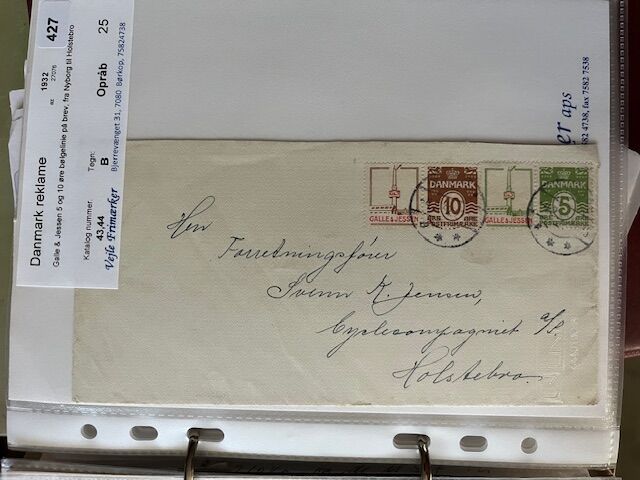 427
Danmark reklame
ez 1932
27076
Galle & Jessen 5 og 10 øre bølgelinie på brev, fra Nyborg til Holstebro
Katalog nummer.
43,44
Tegn:
B
Opråb
25
Vejle Frimærker
Bjerrevænget 31, 7080 Børkop, 75824738
aps
82 4738, fax 7582 7538
GALLE & JESSEN
DANMARK
10
POSTFRIMÆRKE
GALLE & JESSEN
DANMARK
5
Herr
Forretningsfører
Svenn K. Jensen,
Cyclecompagniet A/S
Holstebro.